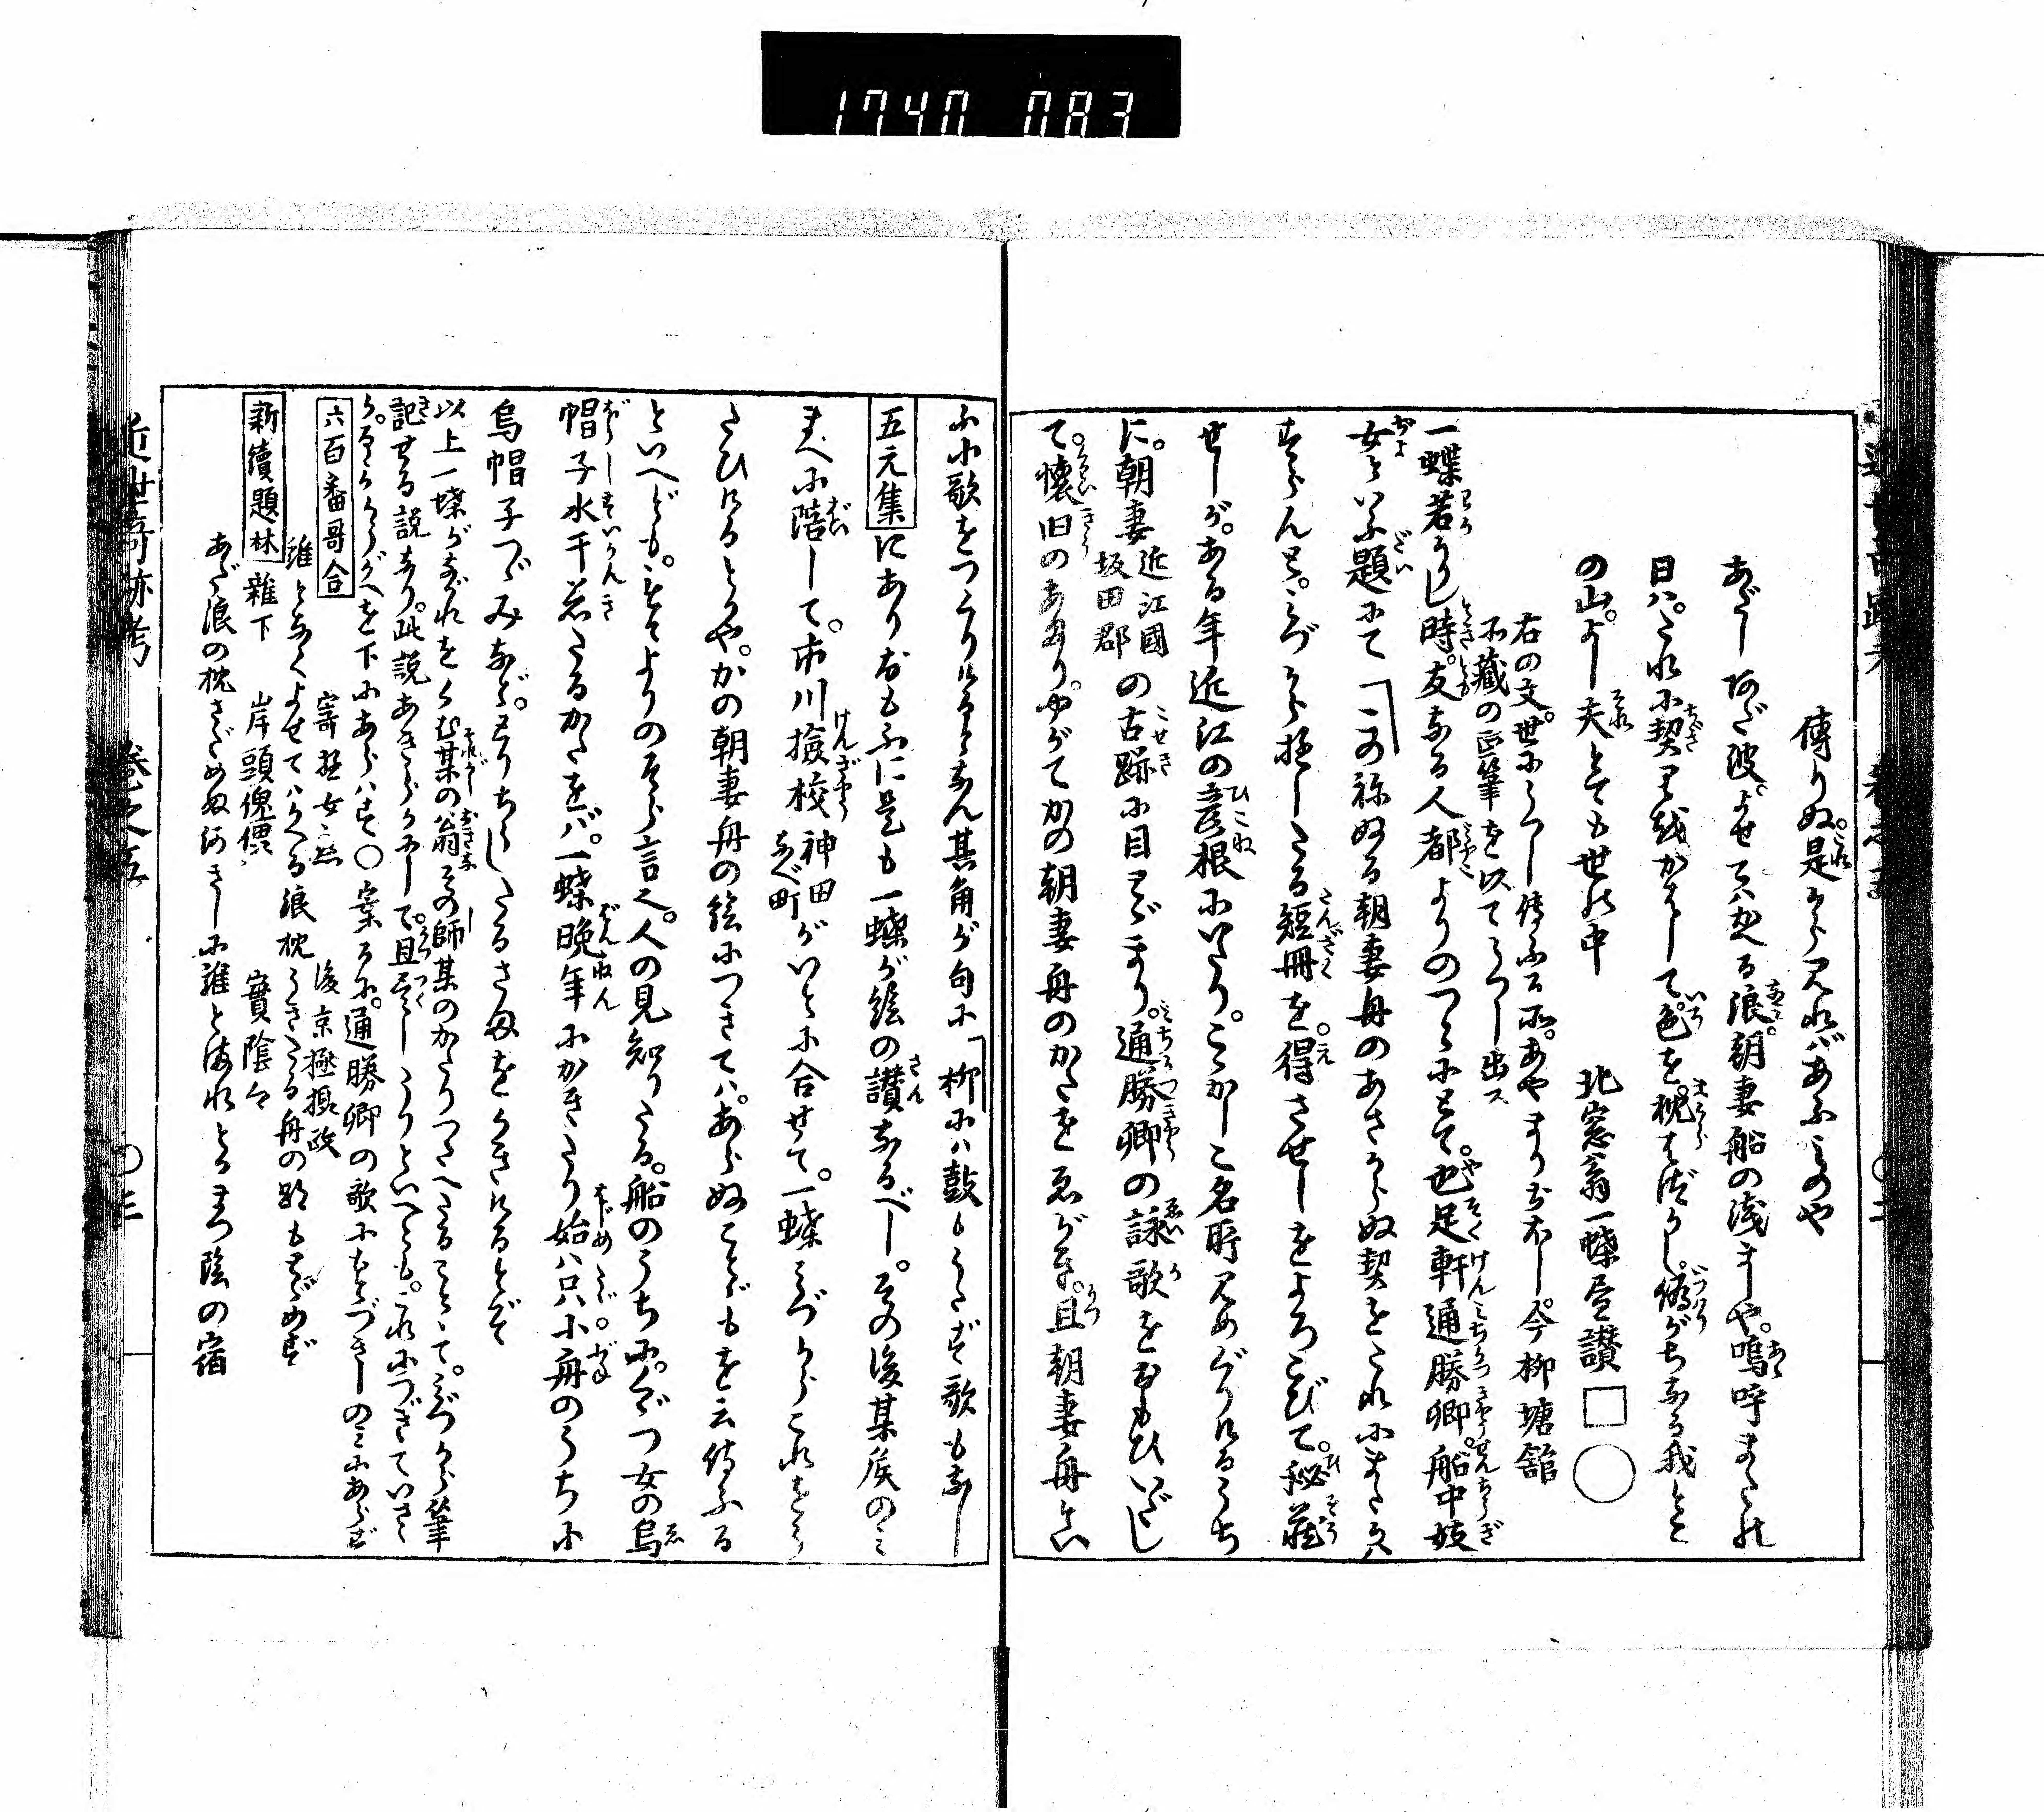 1740 083
傳りぬ。是らくれバあふみのや
あだしあだ波よせてハかへる浪。朝妻船の浅ましや。嗚呼またの
日ハ。たれに契りをかはして。色を。枕はづかし。偽がちなる我とこ
の山。よし夫とても世の中　北窓翁一蝶畫讃
右の文。世にうつし傳ふる所。あやまりおほし。今柳塘舘
所藏の正筆を以てうつし出ス
一蝶若かりし時。友なる人都よりのつとにとて。也足軒通勝卿。船中妓
女といふ題にて「この祢ぬる朝妻舟のあさからぬ契をたれにまたかハ
すらんと。みづから書したる短冊を。得させしをよろこびて。秘蔵
せしが。ある年近江の彦根にいたり。こゝかしこ名所見めぐりけるうち
に。朝妻 近江國坂田郡 の古跡に目とゞまり。通勝卿の詠歌をおもひいだし
て。懐旧のあまり。やがてかの朝妻舟のかたをゑがき。且朝妻舟とい
ふ小歌をつくりけるとなん其角が句に「柳にハ鼓もうたず歌もなし
五元集にありおもふに是も一蝶が絵の讃なるべし。その後某侯のみ
まへに陪して。市川撿校 神田ながく町 がいとに合せて。一蝶みづからこれをうた
たひけるとかや。かの朝妻舟の絵につきてハ。あらぬことゞもを云傳ふる
といへども。もとよりのそら言也。人の見知りたる。船のうちに。くゞつ女の烏
帽子水干着たるかたをバ。一蝶晩年にかきたり始ハ只小舟のうちに
烏帽子つゞみなど。とりちらしたるさまをかきけるとぞ
以上一蝶がながれをくむ某の翁その師某のかたりつたへたることゝて。みづから筆
記せる説あり。此説あきらかにして。且尽しうりといへども。これにつぎていさゝ
か。かうがへを下にあらハす〇案るに。通勝卿の歌にもとづきしのミにあらず
六百番哥合　寄遊女恋　後京極摂政
誰となくよせてハかへる浪枕うきたる舟の跡もとゞめず
新續題林　雜下　岸頭傀儡　實陰公
あだ浪の枕さだめぬ河きしに誰とはれとかまつ陰の宿
近世奇跡考　巻之五　〇三